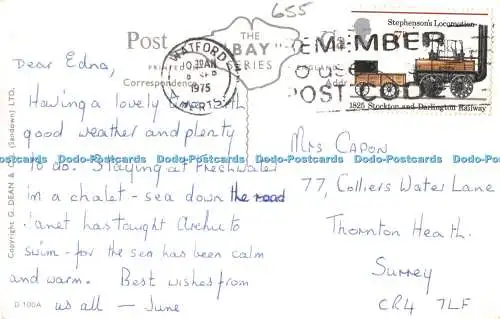 655
Post
THE
"BAY"
SERIES
WATFORD
1975
HERTS
Stephenson's Locomotion
7p
REMEMBER
POST CODE
1825 Stockton and Darlington Railway
Correspondence
Dear Edna,
Having a lovely time with
good weather and plenty
to do. Staying at Freshwater
in a chalet - sea down the road
Janet has taught
swim - for the sea has been calm
and warm. Best wishes from
us all - June
Mrs Capon
77, Colliers Water Lane
Thornton Heath.
Surrey
CR4 7LF
Dodo-Postcards Dodo-Postcards Dodo-Postcards Dodo-Postcards Dodo-Postcards Dodo-Postcards Dodo-Postcards
Copyright G. DEAN & (Sandown) LTD.
D 100A